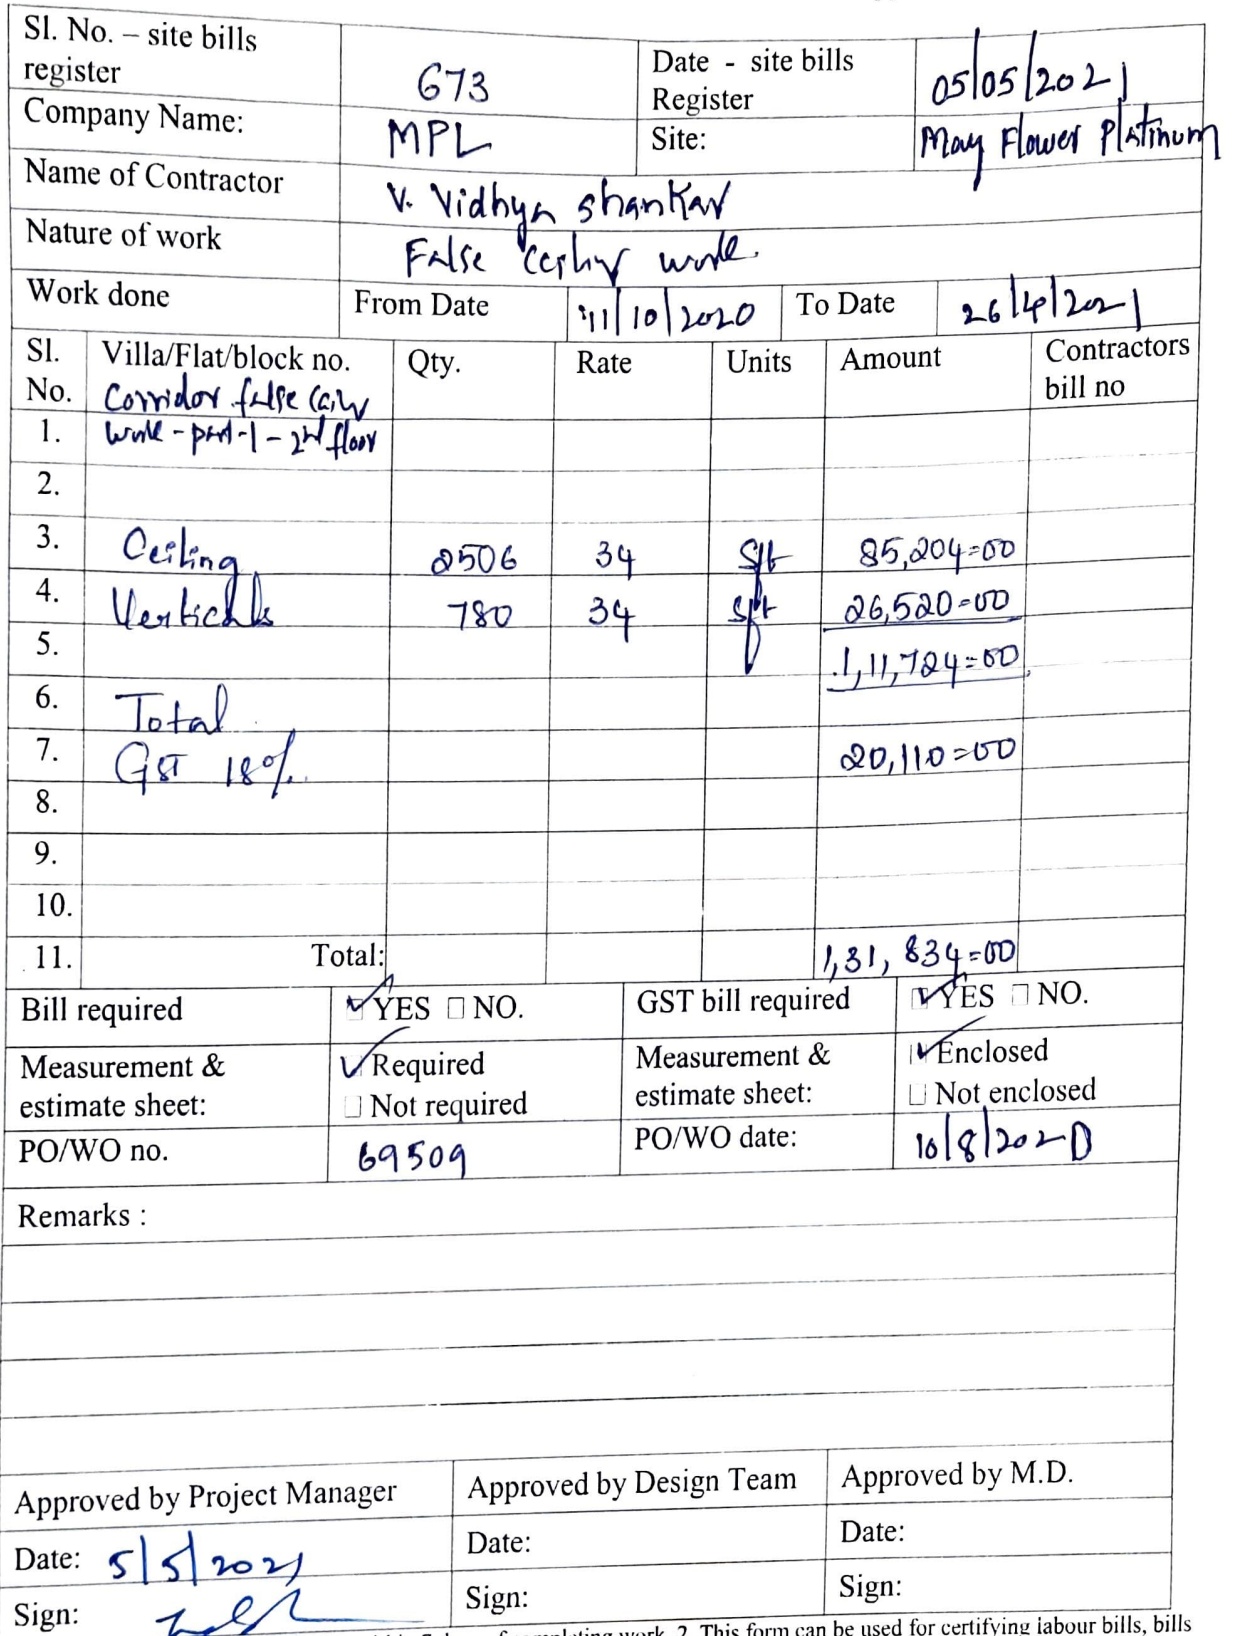 Sl. No. – site bills register 673 Date - site bills Register 05/05/2021
Company Name: MPL Site: May Flower Platinum
Name of Contractor V. Vidhya Shankar
Nature of work False work.
Work done From Date 11/10/2020 To Date 26/4/2021
Sl. No. Villa/Flat/block no. Qty. Rate Units Amount Contractors bill no
Corridor false
1. work - part-1 - 2nd floor
2.
3. Ceiling 2506 34 Sft 85,204=00
4. Verticals 780 34 Sft 26,520=00
5. 1,11,724=00
6. Total
7. GST 18% 20,110=00
8.
9.
10.
11. Total: 1,31,834=00
Bill required YES NO. GST bill required YES NO.
Measurement & estimate sheet: Required Not required Measurement & estimate sheet: Enclosed Not enclosed
PO/WO no. 69509 PO/WO date: 10/8/2020
Remarks :
Approved by Project Manager Approved by Design Team Approved by M.D.
Date: 5/5/2021 Date: Date:
Sign: Sign: Sign:
work. 2. This form can be used for certifying labour bills, bills